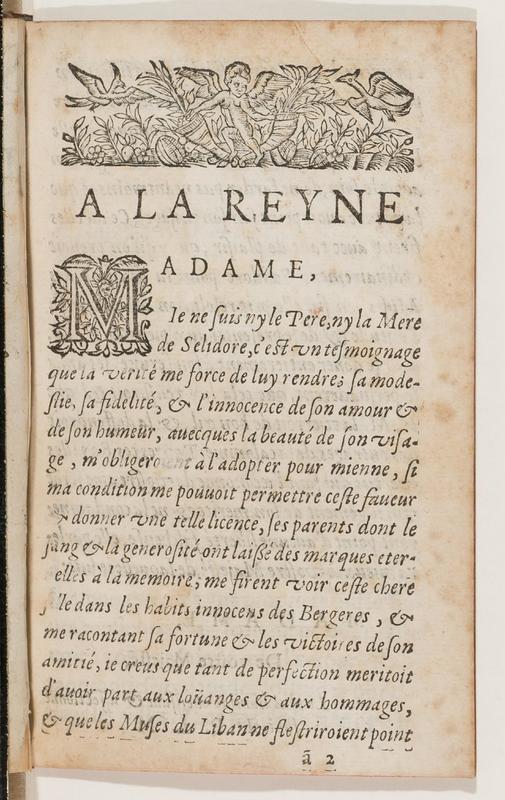 A LA REYNE
MADAME,
Ie ne suis ny le Pere, ny la Mere
de Selidore, c'est vn tesmoignage
que la verité me force de luy rendre; sa mode-
stie, sa fidelité, & l'innocence de son amour &
de son humeur, auecques la beauté de son visa-
ge, m'obligero à l'adopter pour mienne, si
ma condition me pouuoit permettre ceste faueur
donner vne telle licence, ses parents dont le
sang & la generosité ont laissé des marques eter-
elles à la memoire, me firent voir ceste chere
le dans les habits innocens des Bergeres, &
me racontant sa fortune & les victoires de son
amitié, ie creus que tant de perfection meritoit
d'auoir part aux loüanges & aux hommages,
& que les Muses du Liban ne flestriroient point
ã 2